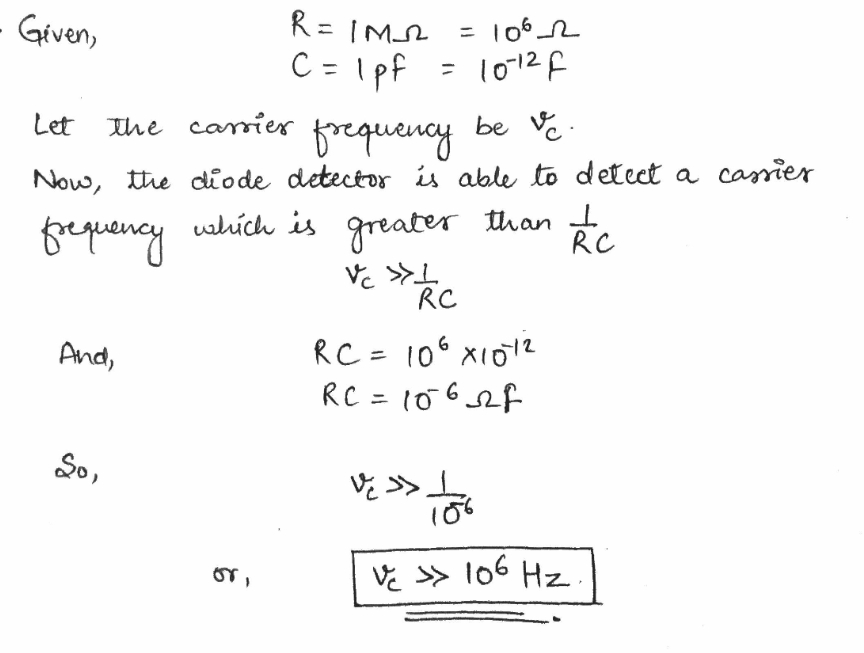 Given, R = 1 MΩ = 10⁶ Ω
C = 1 pf = 10⁻¹² f
Let the carrier frequency be νc.
Now, the diode detector is able to detect a carrier
frequency which is greater than 1/RC
νc >> 1/RC
And, RC = 10⁶ × 10⁻¹²
RC = 10⁻⁶ Ωf
So, νc >> 1/10⁻⁶
or, νc >> 10⁶ Hz.